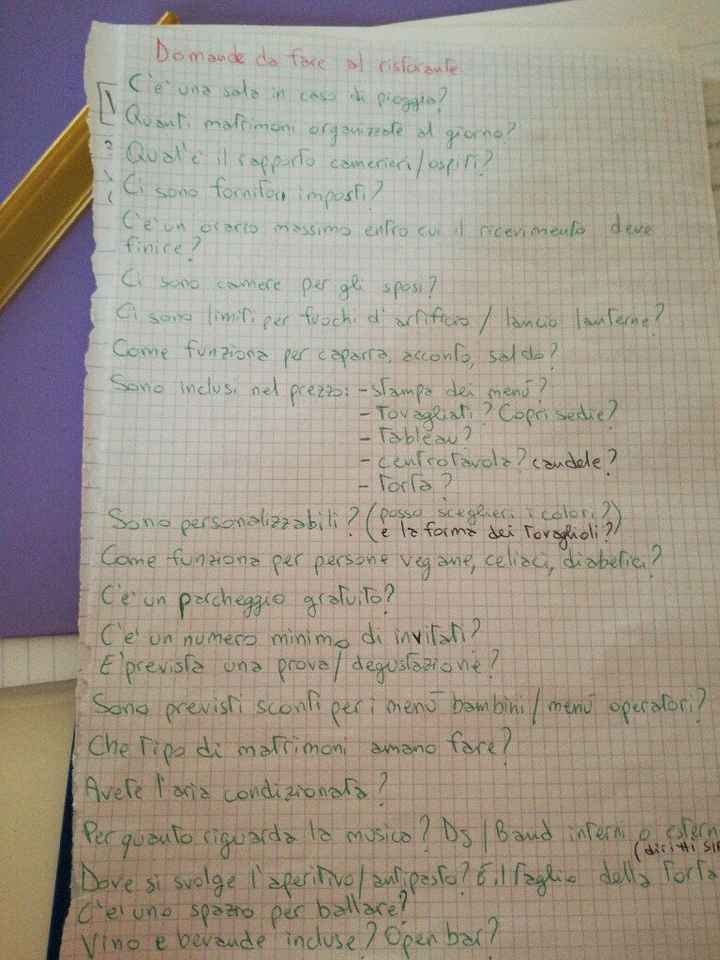 Domande da fare al ristorante
C'e' una sala in caso di pioggia?
Quanti matrimoni organizzate al giorno?
? Qual'e' il rapporto camerieri/ospiti?
Ci sono fornitori imposti?
C'e' un orario massimo entro cui il ricevimento deve
finire?
Ci sono camere per gli sposi?
Ci sono limiti per fuochi d'artificio / lancio lanterne?
Come funziona per caparra, acconto, saldo?
Sono inclusi nel prezzo: - stampa dei menù?
- Tovagliati? Coprisedie?
- Tableau?
- centrotavola? candele?
- Torta?
Sono personalizzabili? (posso sceglieri i colori?)
e la forma dei Tovaglioli?
Come funziona per persone vegane, celiaci, diabetici?
C'e' un parcheggio gratuito?
C'e' un numero minimo di invitati?
E' prevista una prova/degustazione?
Sono previsti sconti per i menù bambini/menù operatori?
Che Tipo di matrimoni amano fare?
Avete l'aria condizionata?
Per quanto riguarda la musica? Dj/Band interni o estern
(diritti SI
Dove si svolge l'aperitivo/antipasto? E il Taglio della Torta
C'e' uno spazio per ballare?
Vino e bevande incluse? Open bar?